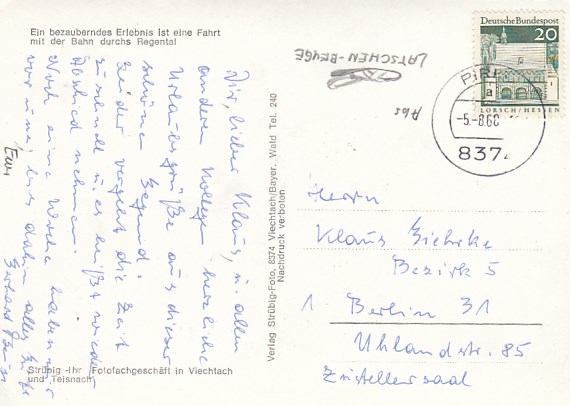 Ein bezauberndes Erlebnis ist eine Fahrt
mit der Bahn durchs Regental
Dir, lieber Klaus, u. allen
anderen Kollegen herzliche
Urlaubsgrüße aus dieser
schönen Gegend.
Leider vergeht die Zeit
zu schnell u. es heißt wieder
Abschied nehmen.
Noch eine Woche haben wir
vor uns; bis dahin alles Gute
Euer
Gerhard
Strübig - Ihr Fotofachgeschäft in Viechtach
und Teisnach
Verlag Strübig-Foto, 8374 Viechtach/Bayer. Wald Tel. 240
Nachdruck verboten
LATSCHEN-BEUGE
Abs
Deutsche Bundespost
20
LORSCH/HESSEN
PIR
a
-5.-8.68
837
Herrn
Klaus Ziehrke
Bezirk 5
1 Berlin 31
Uhlandstr. 85
Zustellersaal